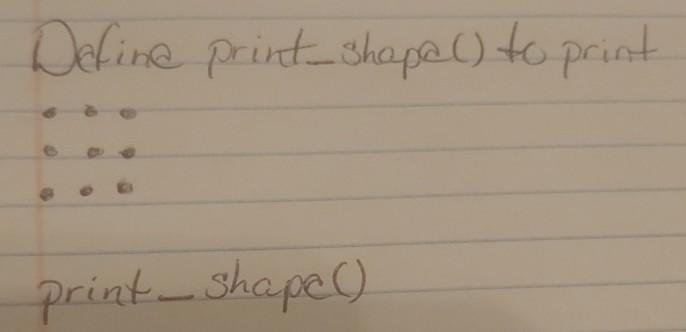 Define print_shape() to print
• • •
• • •
• • •
print_shape()